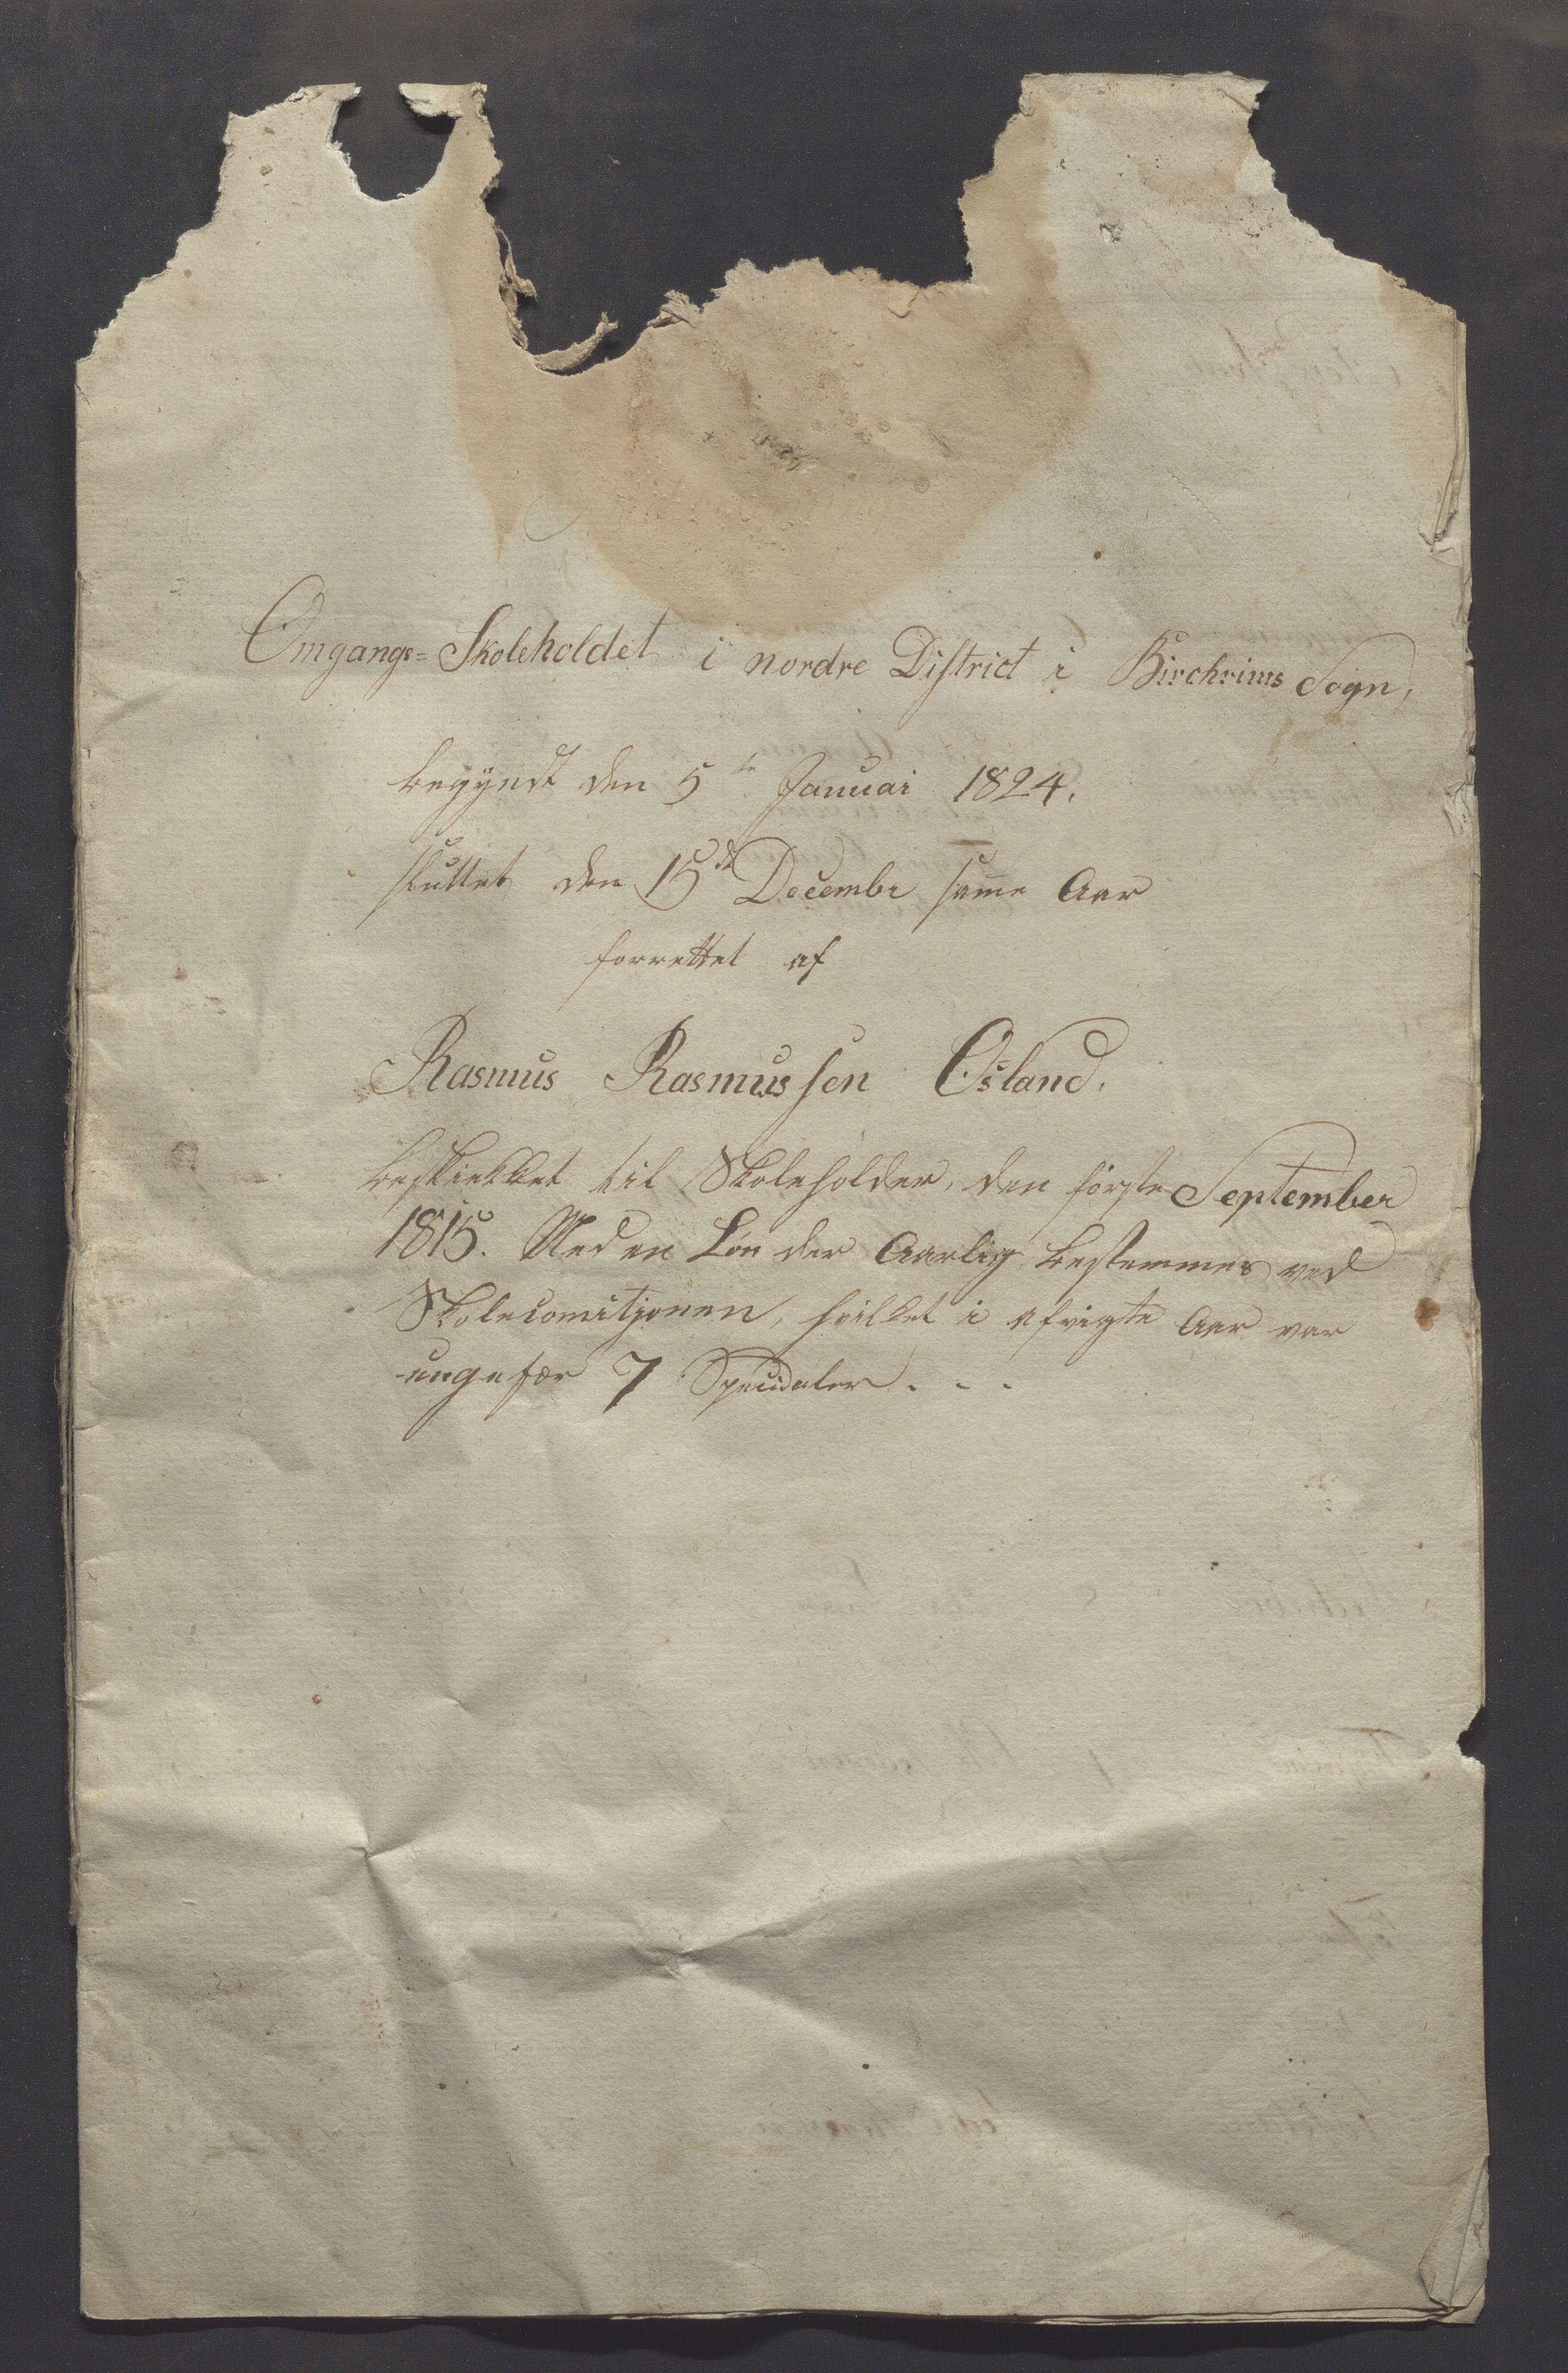 Omgangs=Skoleholdet i nordre District i Birchrims Sogn,
begyndt den 5te Januai 1824.
sluttet den 15de Decembr same Aar
forrettet af
Rasmus Rasmussen Osland.
beskikket til Skoleholder, den første September
1815. Med en Løn der Aarlig bestemmes ved
Skolecomitjonen, hvilket i afvigte Aar var
ungefær 7 Specidaler. - -